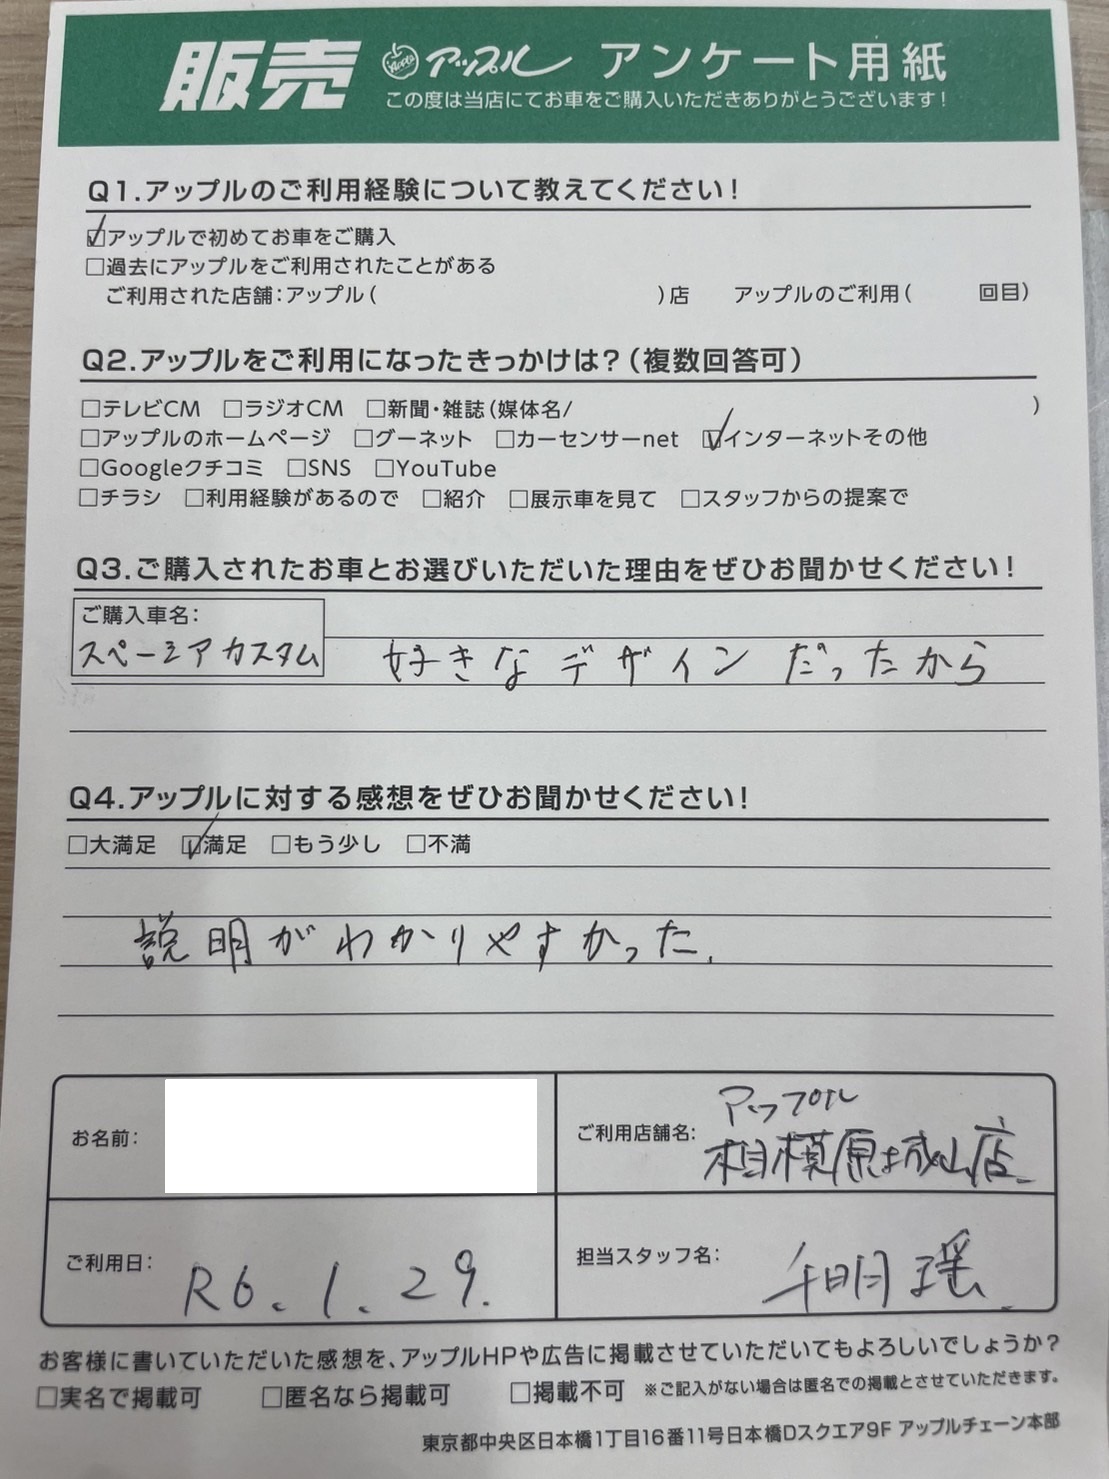 販売 アップル アンケート用紙
この度は当店にてお車をご購入いただきありがとうございます！
Q1.アップルのご利用経験について教えてください！
☑アップルで初めてお車をご購入
□過去にアップルをご利用されたことがある
ご利用された店舗：アップル（　　　）店　アップルのご利用（　　回目）
Q2.アップルをご利用になったきっかけは？（複数回答可）
□テレビCM □ラジオCM □新聞・雑誌（媒体名/　　　）
□アップルのホームページ □グーネット □カーセンサーnet ☑インターネットその他
□Googleクチコミ □SNS □YouTube
□チラシ □利用経験があるので □紹介 □展示車を見て □スタッフからの提案で
Q3.ご購入されたお車とお選びいただいた理由をぜひお聞かせください！
ご購入車名：
スペーシアカスタム 好きなデザインだったから
Q4.アップルに対する感想をぜひお聞かせください！
□大満足 ☑満足 □もう少し □不満
説明がわかりやすかった.
お名前：
ご利用店舗名： アップル
相模原城山店
ご利用日： R6.1.29.
担当スタッフ名： 明瑶
お客様に書いていただいた感想を、アップルHPや広告に掲載させていただいてもよろしいでしょうか？
□実名で掲載可 □匿名なら掲載可 □掲載不可 ※ご記入がない場合は匿名での掲載とさせていただきます。
東京都中央区日本橋1丁目16番11号日本橋Dスクエア9F アップルチェーン本部